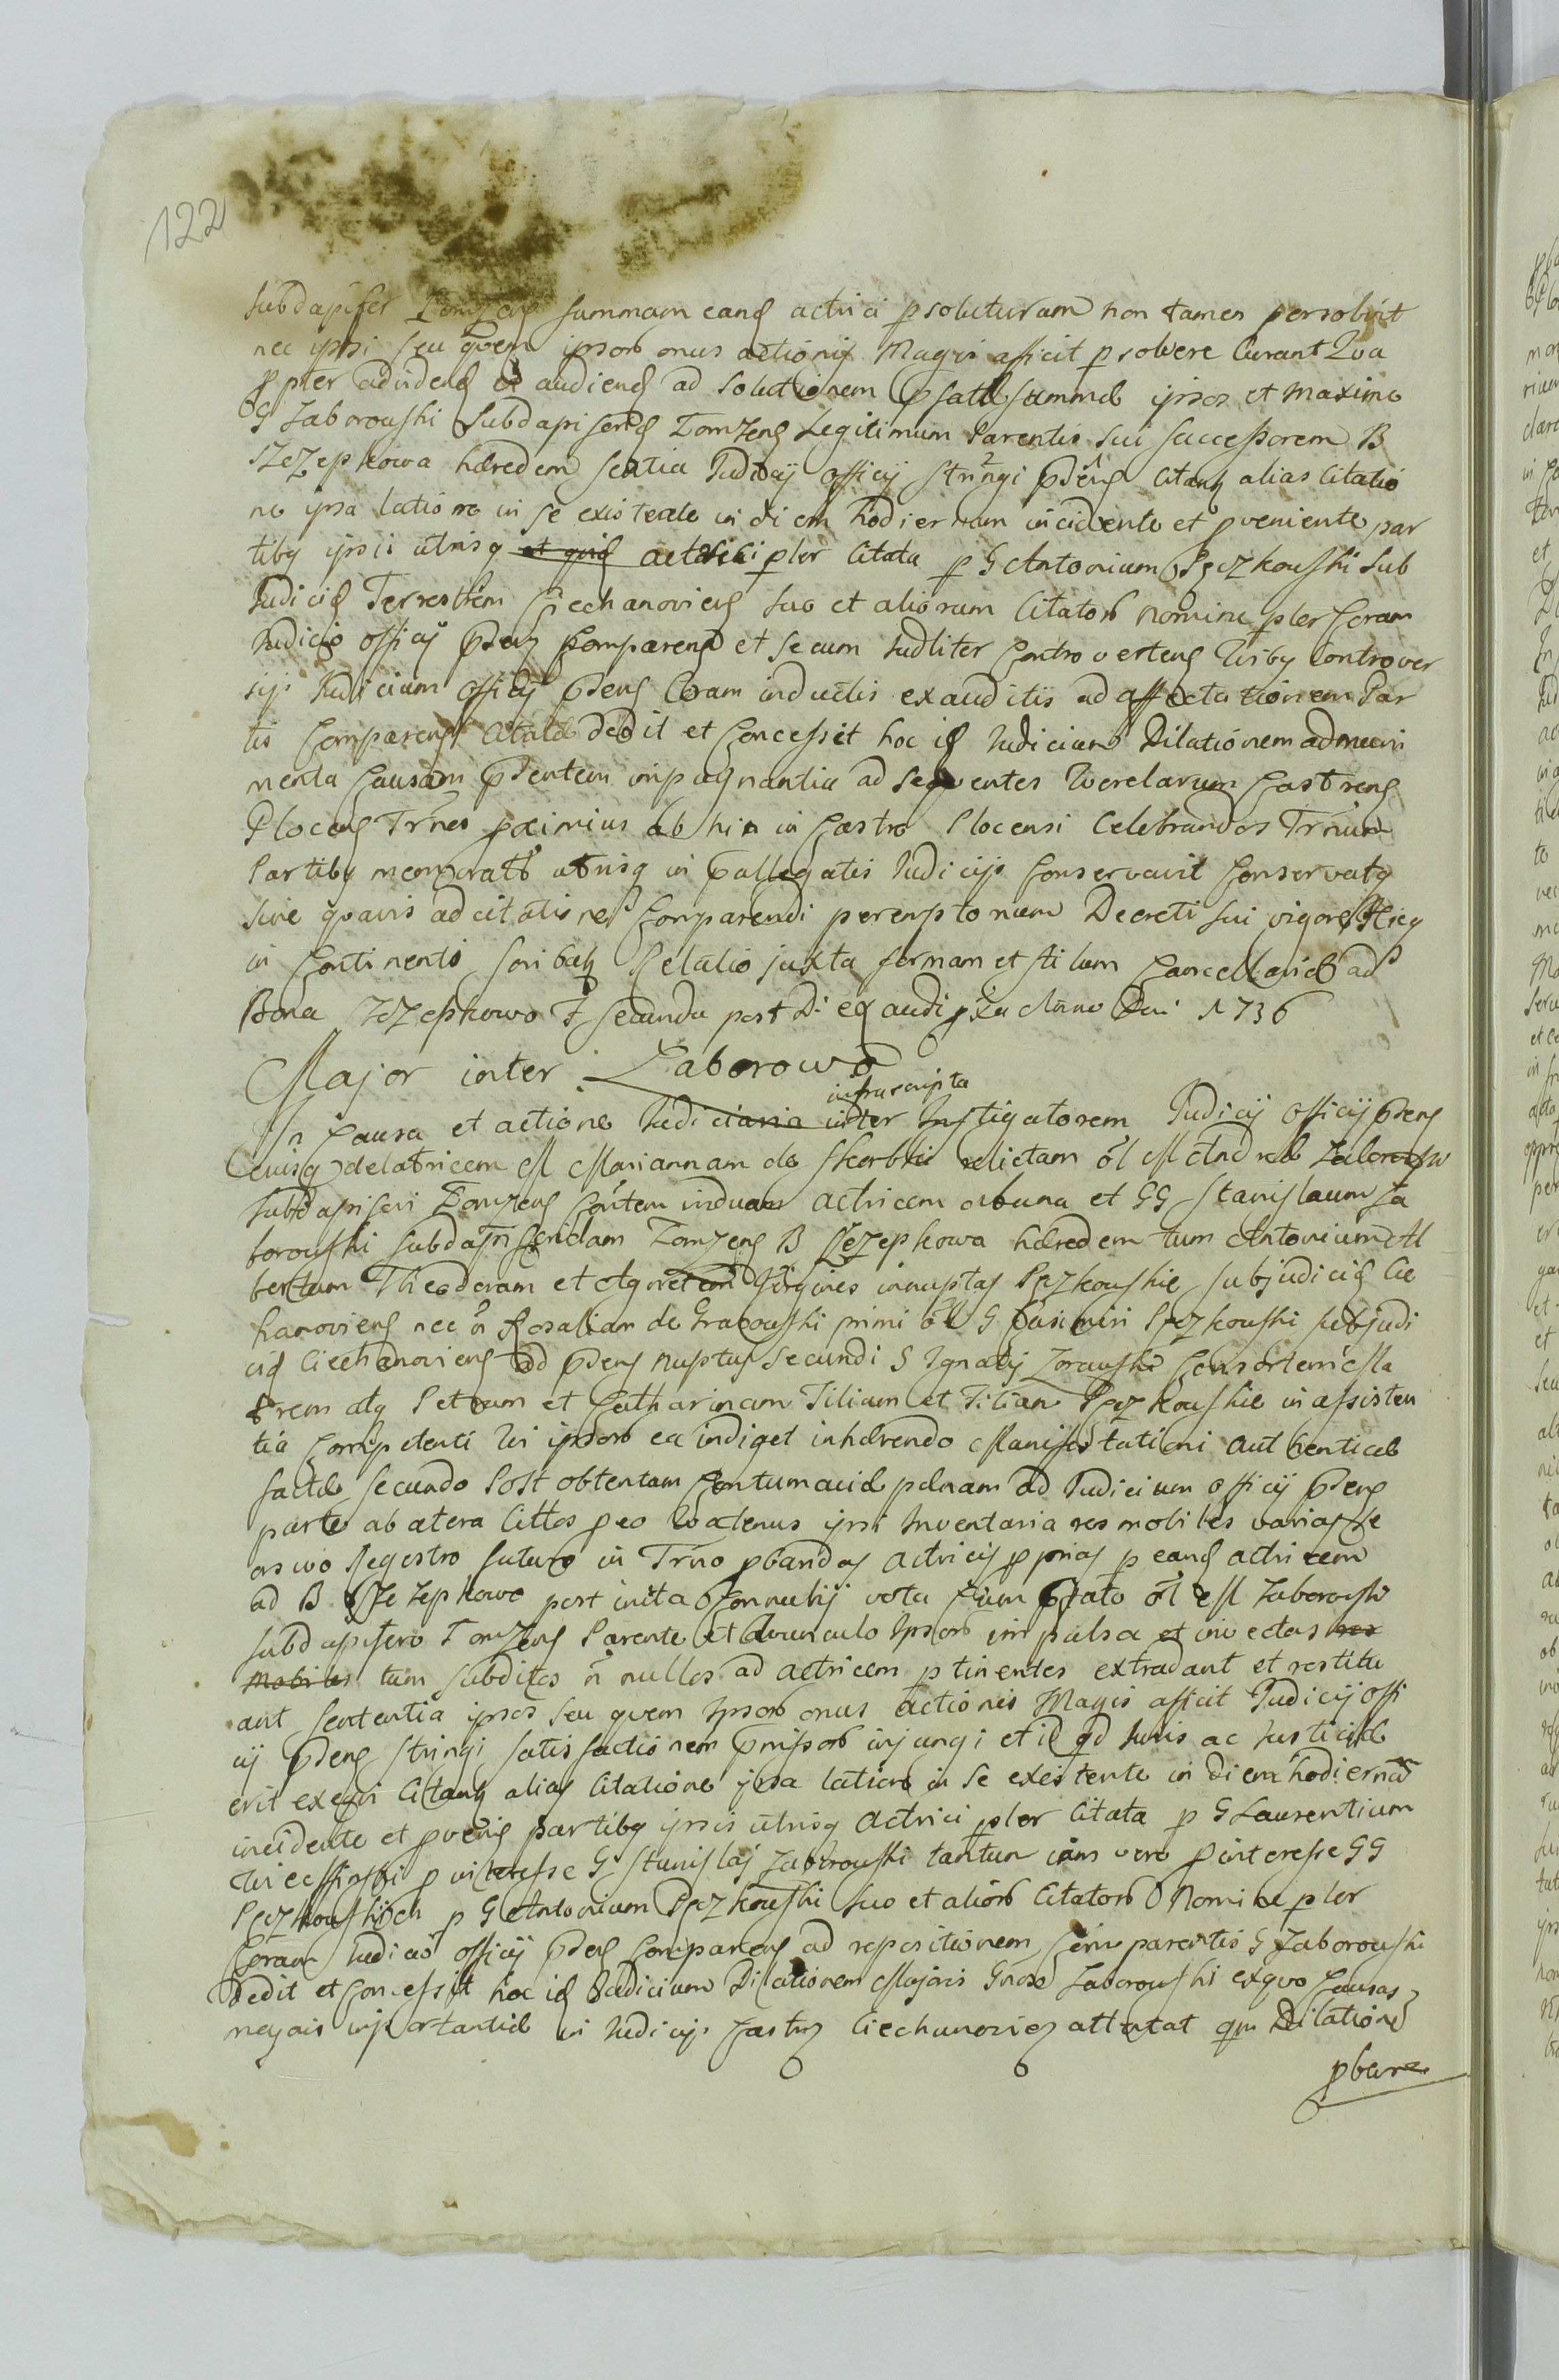 122
subdapifer Łomzeng summam eand actrici psoluturam non tamen persolvit
nec ipsi seu quem ipsorb onus actionis Magis afficit psolvere Curant Qva
ppter ad vidend et audiend ad solutionem psatae summae ipsos et maxime
G Zaborowski Subdapiferid Łomzens Legitimum Parentis sui successorem B
Szczepkowa haeredem sentia Judicij officij stringi pdens citanq alias Citatio
ne ipsa latione in se existente in diem hodiernum incidente et pveniente par
tibq ipsis utrisq et quid actrici pler Citata p G Antonium Pączkowski Sub
Judicid Terrestrem Ciechanoviens suo et aliorum Citatorb nomine pler Coram
Judicio officij pdens Comparend et secum Judliter Controvertens Qvibq Controver
sijs Judicium officij pdens Coram inductis exauditis ad affectationem Par
tis Comparens Citatae dedit et Concessit hoc id Judicium Dilationem ad muni
menta Causam pdentem impugnantia ad seqventes Qverelarum Castrens
Plocens Trnos pximius ab hinc in Castro Plocensi Celebrandos Trnum
Partibq memoratis utrisq in pallegatis Judicijs Conservavit Conservatq
sine qvavis adcitatione Comparendi peremptorium Decreti sui vigore Hicq
in Continenti scribatq Relatio juxta formam et stilum Cancellariae ad
Bona Szczepkowo F secunda post D. Exaudi pxa Anno Dni 1736
Major inter Zaborowo
infrascripta
In Causa et actione Judiciaria inter Instigatorem Judicij officij pdens
eiusq delatricem M Mariannam de Skarbki relictam ol M Andreae Zaborowski
Subdapiferi Łomzens Contem viduam actricem ab una et GG Stanislaum Za
borowski Subdapiferidam Łomzens B Szczepkowa haeredem tum Antonium Al
bertum Theodoram et Agnetem Virgines innuptas Pączkowskie subjudicid Cie
hanoviens nec n Rosaliam de Grabowski primi ol G Casimiri Pączkowski subjudi
cid Ciechanoviens ad pdens nuptus secundi G Ignatij Zorawski Consortem Ma
trem atq Petrum et Catharinam Filium et Filiam Pączkowskie in assisten
tia Competenti Qvi ipsorb ea indiget inhaerendo Manifestationi authenticae
factae secundo Post obtentam Contumaciae paenam ad Judicium officij pdens
parte ab altera Cittos p eo Qvatenus ipsi Inventaria res mobiles varias se
orsivo Regestro futuro in Trno pbandas actricis pprias p eand actricem
ad B Szczepkowo post inita Connubij vota cum pfato ol M Zaborowski
subdapifero Łomzens Parente et Avunculo Ipsorb impulsa et invectas res
mobiles tum subditos n nullos ad actricem ptinentes extradant et restitu
ant sententia ipsos seu quem Ipsorb onus actionis Magis afficit Judicij offi
cij pdens stringi satisfactionem pmissorb injungi et id qd Juris ac Justitiae
erit exeqvi Citanq alias Citatione ipsa latione in se existente in diem hodiernam
incidente et pveniq partibq ipsis utrisq Actrici pler Citata p G Laurentium
p interesse G Stanislai Zaborowski tantum iam vero p interesse GG
Pączkowskich p G Antonium Pączkowski suo et aliorb Citatorb Nomine pler
Coram Judicio officij pdens Comparens ad repositionem Comparentis G Zaborowski
Dedit et Concessit hoc id Judicium Dilationem Majoris Gnose Zaborowski ex quo Causas
majoris importantiae in Judicijs Castrq Ciechanovieq attentat qm Dilatione
pbare